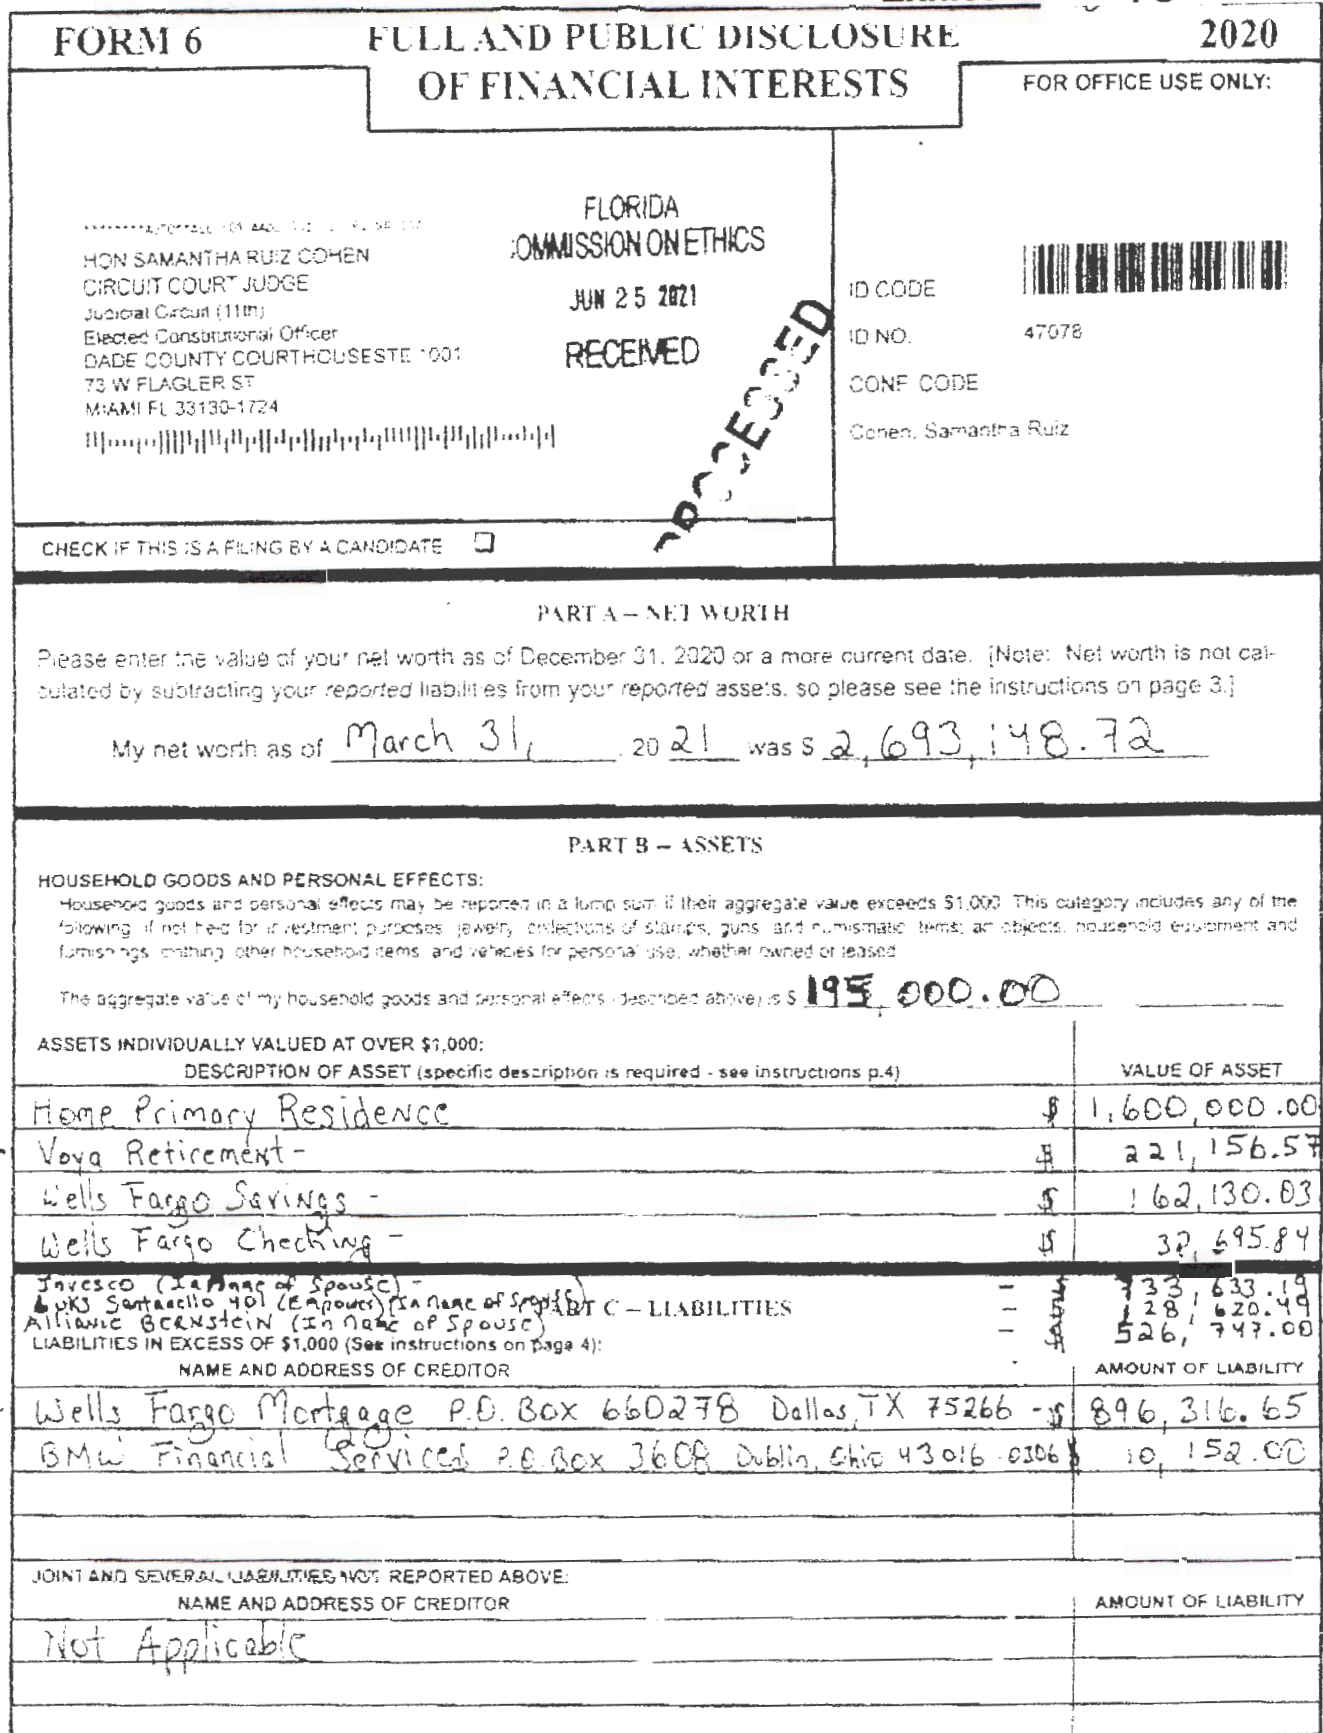 FORM 6
FULL AND PUBLIC DISCLOSURE
2020
OF FINANCIAL INTERESTS
FOR OFFICE USE ONLY:
FLORIDA
COMMISSION ON ETHICS
JUN 25 2021
RECEIVED
PROCESSED
HON SAMANTHA RUIZ COHEN
CIRCUIT COURT JUDGE
Judicial Circuit (11th)
Elected Constitutional Officer
DADE COUNTY COURTHOUSESTE 1001
73 W FLAGLER ST
MIAMI FL 33130-1724
ID CODE
ID NO. 47078
CONF. CODE
Cohen, Samantha Ruiz
CHECK IF THIS IS A FILING BY A CANDIDATE
PART A – NET WORTH
Please enter the value of your net worth as of December 31, 2020 or a more current date. [Note: Net worth is not cal-
culated by subtracting your reported liabilities from your reported assets, so please see the instructions on page 3.]
My net worth as of March 31, , 20 21 was $ 2,693,148.72
PART B – ASSETS
HOUSEHOLD GOODS AND PERSONAL EFFECTS:
Household goods and personal effects may be reported in a lump sum if their aggregate value exceeds $1,000. This category includes any of the
following, if not held for investment purposes: jewelry; collections of stamps, guns, and numismatic items; art objects; household equipment and
furnishings; clothing; other household items; and vehicles for personal use, whether owned or leased.
The aggregate value of my household goods and personal effects (described above) is $ 195,000.00
ASSETS INDIVIDUALLY VALUED AT OVER $1,000:
DESCRIPTION OF ASSET (specific description is required - see instructions p.4) VALUE OF ASSET
Home Primary Residence $ 1,600,000.00
Voya Retirement - $ 221,156.57
Wells Fargo Savings - $ 162,130.03
Wells Fargo Checking - $ 32,695.84
Invesco (In Name of Spouse) - - $ 733,633.19
Santanello 401 (Empower) (In Name of Spouse) - $ 128,620.49
Alliance BERNSTEIN (In Name of Spouse) - $ 526,747.00
PART C – LIABILITIES
LIABILITIES IN EXCESS OF $1,000 (See instructions on page 4):
NAME AND ADDRESS OF CREDITOR AMOUNT OF LIABILITY
Wells Fargo Mortgage P.O. Box 660278 Dallas, TX 75266 - $ 896,316.65
BMW Financial Services P.O. Box 3608 Dublin, Ohio 43016-0306 $ 10,152.00
JOINT AND SEVERAL LIABILITIES NOT REPORTED ABOVE:
NAME AND ADDRESS OF CREDITOR AMOUNT OF LIABILITY
Not Applicable